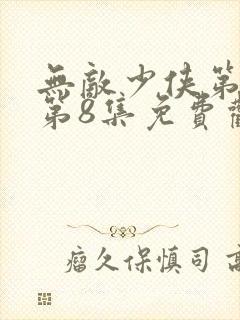 無敵少俠第
第8集免費
瘤久保慎司